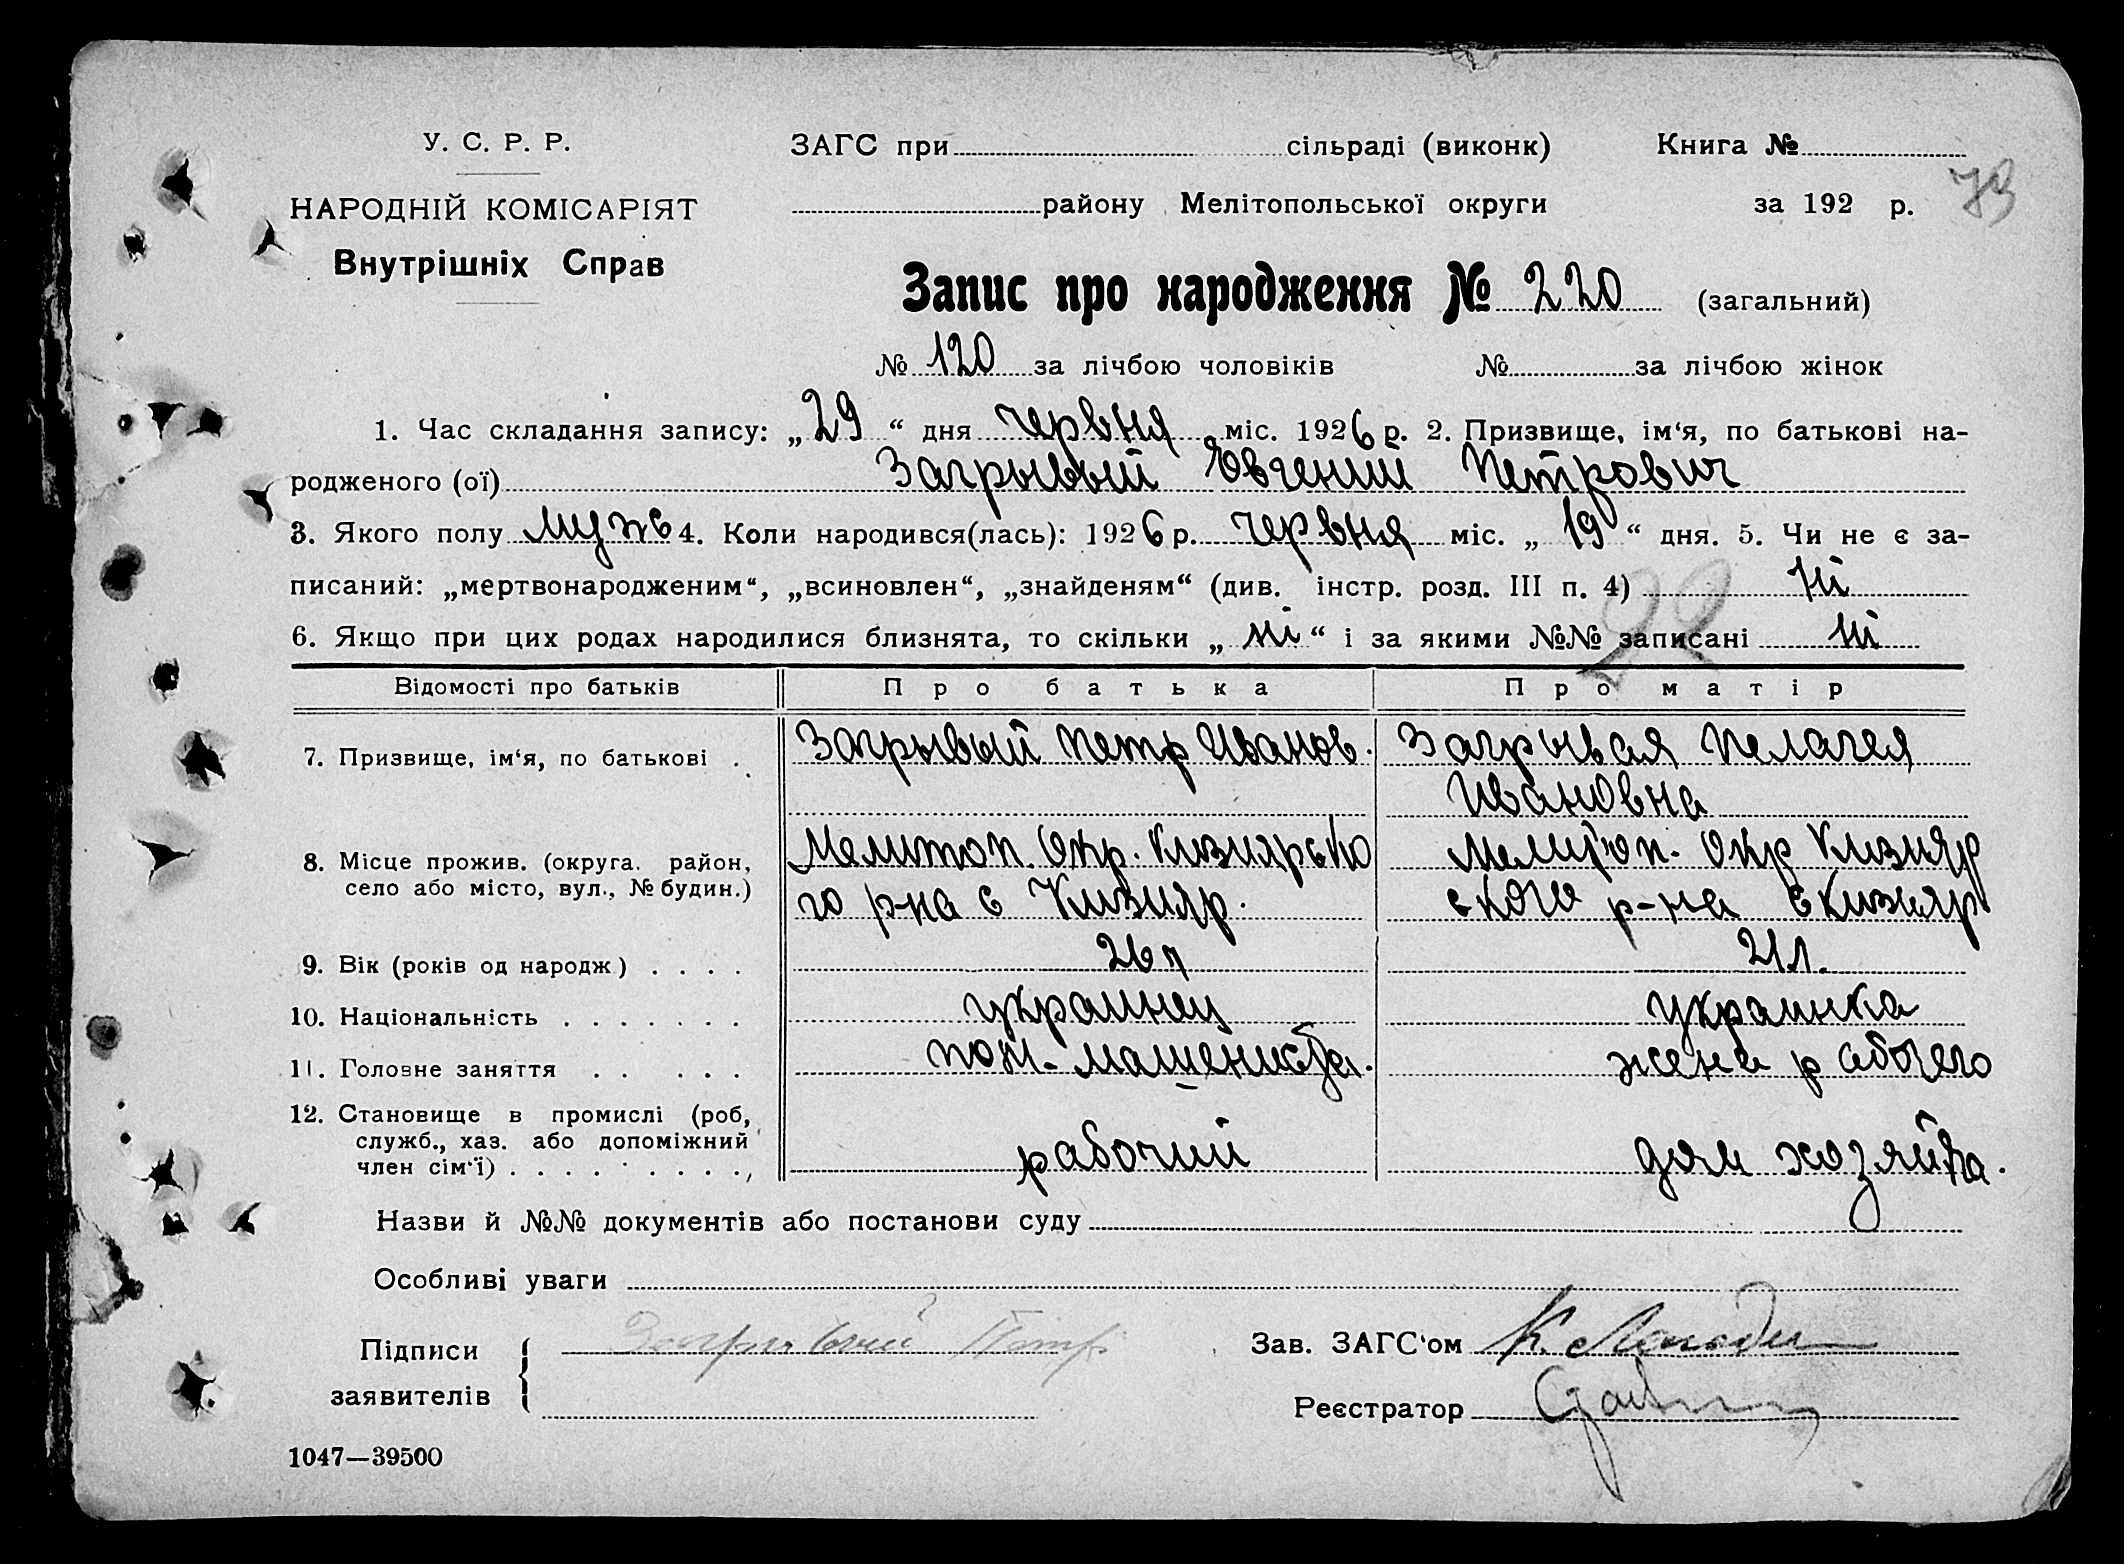 У. С. Р. Р.
НАРОДНІЙ КОМІСАРІЯТ
Внутрішніх Справ
ЗАГС при сільраді (виконк) Книга №
району Мелітопольської округи за 192 р.
Запис про народження № 220 (загальний)
№ 120 за лічбою чоловіків № за лічбою жінок
1. Час складання запису: „29“ дня червня міс. 1926 р. 2. Призвище, ім‘я, по батькові на-
родженого (ої) Загрывый Евгений Петрович
3. Якого полу муж 4. Коли народився(лась): 1926 р. червня міс. „19“ дня. 5. Чи не є за-
писаний: „мертвонародженим“, „всиновлен“, „знайденям“ (див. інстр. розд. III п. 4) ні
22
6. Якщо при цих родах народилися близнята, то скільки „ні“ і за якими №№ записані ні
Відомості про батьків Про батька Про матір
7. Призвище, ім‘я, по батькові . Загрывый Петр Иванов. Загрывая Пелагея
Ивановна
8. Місце прожив. (округа. район, село або місто, вул., № будин.)
Мелитоп. Окр. Кизиярско
го р-на с Кизияр.
Мелитоп. Окр Кизияр
ского р-на с Кизияр
9. Вік (років од народж.) . . . . 26 л 21 л.
10. Національність . . . . . . . украинец украинка
11. Головне заняття . . . . . пом. машениста. жена рабочего
12. Становище в промислі (роб,
служб., хаз. або допоміжний
член сім‘ї) . . . . . . . . . , рабочий дом хозяйка.
Назви й №№ документів або постанови суду
Особливі уваги
Підписи
заявителів
Загрывый Петр
Зав. ЗАГС‘ом
Реєстратор
1047—39500